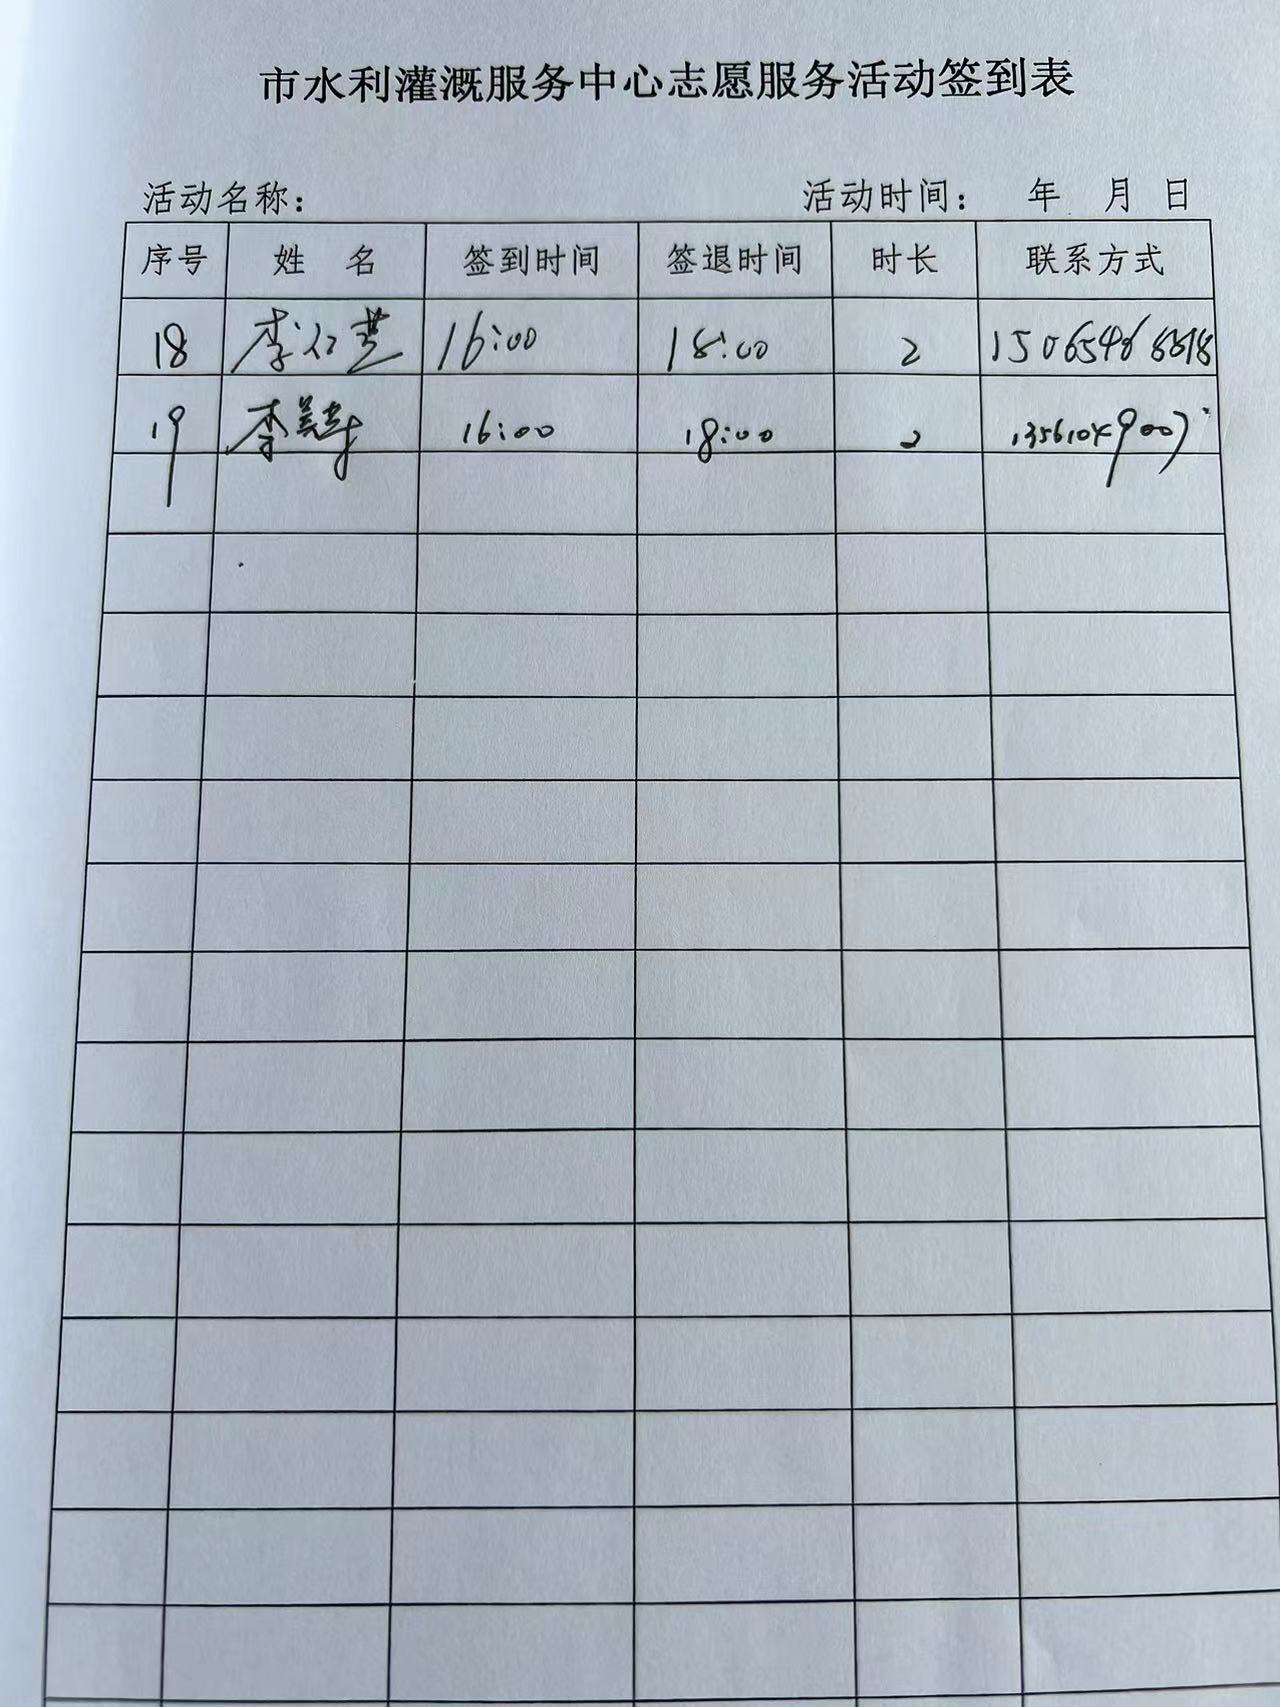 市水利灌溉服务中心志愿服务活动签到表
活动名称： 活动时间： 年 月 日
序号 姓 名 签到时间 签退时间 时长 联系方式
18 李 16:00 18:00 2
19 李 16:00 18:00 2